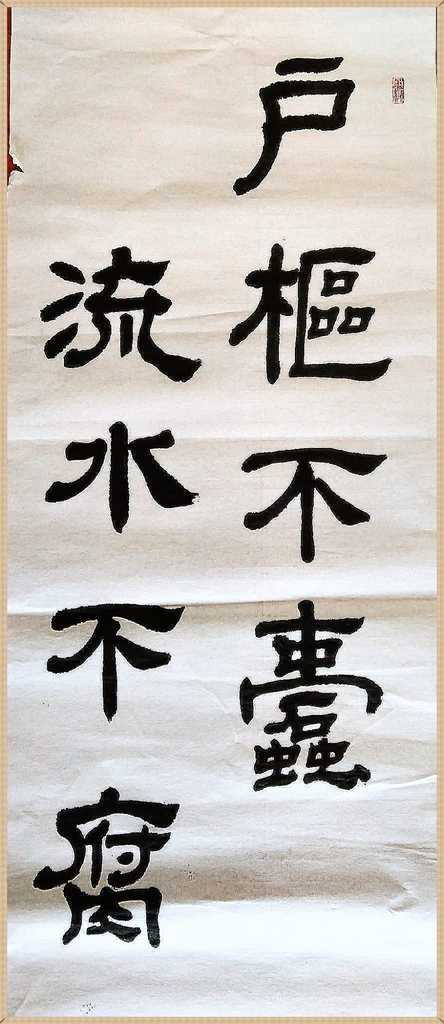 户樞不蠹
流水不腐